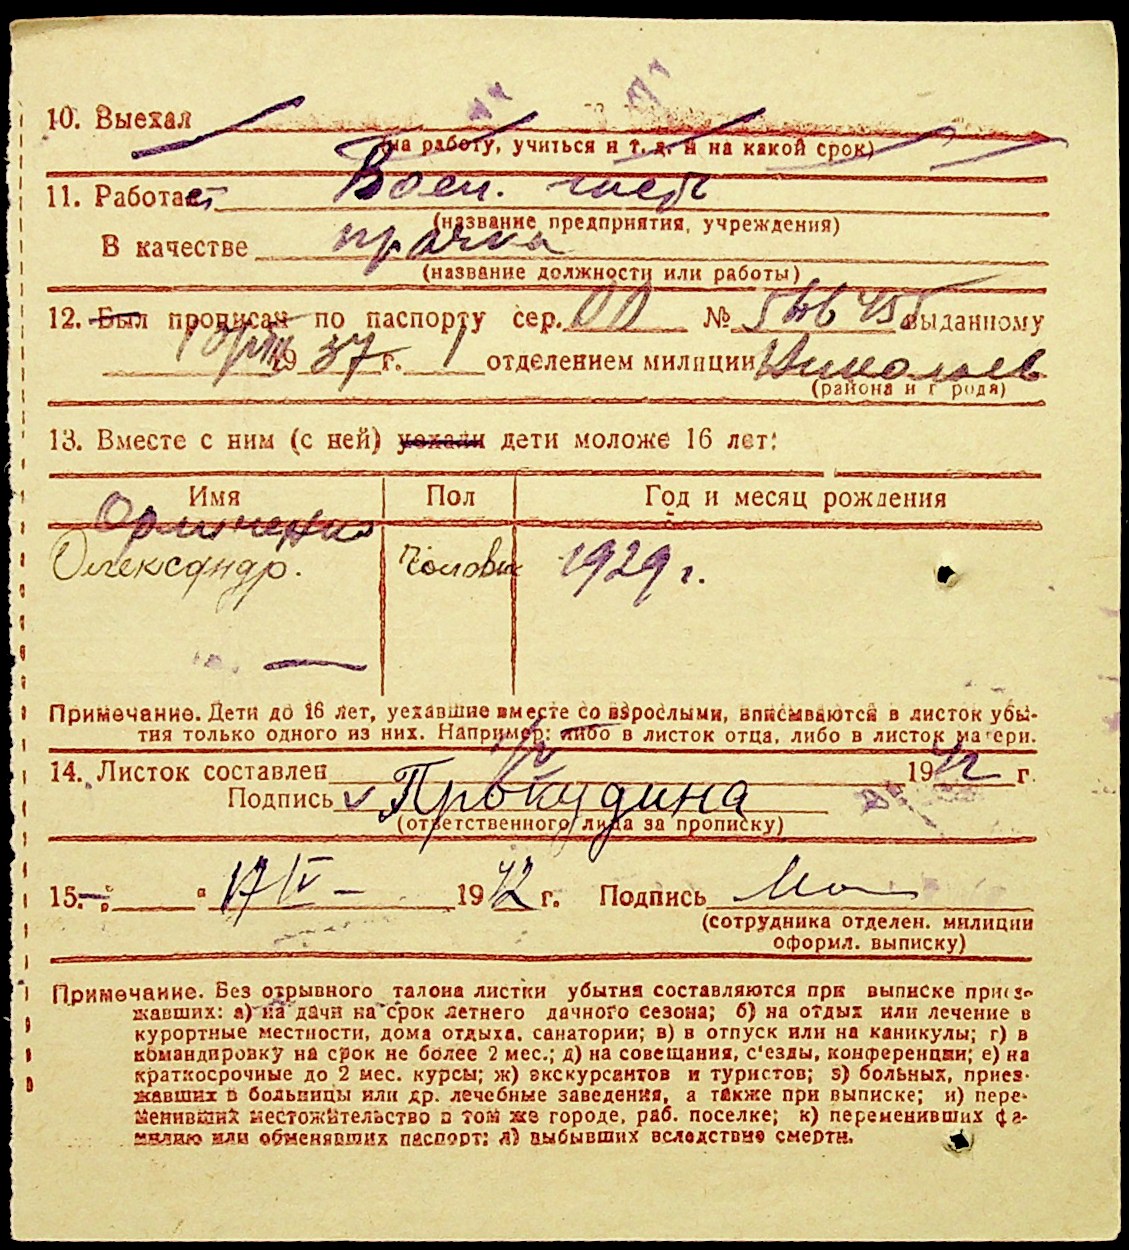 10. Выехал
(на работу, учиться и т. д. и на какой срок)
11. Работает Воен.
(название предприятия, учреждения)
В качестве прачка
(название должности или работы)
12. Был прописан по паспорту сер. № выданному
19 37 г. 1 отделением милиции Николаев
(района и г рода)
13. Вместе с ним (с ней) уехали дети моложе 16 лет:
Имя Пол Год и месяц рождения
Олександр. 1929 г.
Примечание. Дети до 16 лет, уехавшие вместе со взрослыми, вписываются в листок убы-
тия только одного из них. Например: либо в листок отца, либо в листок матери.
14. Листок составлен 1942 г.
Подпись Прокудина
(ответственного лица за прописку)
15. 17/IV – 1942 г. Подпись
(сотрудника отделен. милиции
оформл. выписку)
Примечание. Без отрывного талона листки убытия составляются при выписке приез-
жавших: а) на дачи на срок летнего дачного сезона; б) на отдых или лечение в
курортные местности, дома отдыха, санатории; в) в отпуск или на каникулы; г) в
командировку на срок не более 2 мес.; д) на совещания, с'езды, конференции; е) на
краткосрочные до 2 мес. курсы; ж) экскурсантов и туристов; з) больных, приез-
жавших в больницы или др. лечебные заведения, а также при выписке; и) пере-
менивших местожительство в том же городе, раб. поселке; к) переменивших фа-
милию или обменявших паспорт; л) выбывших вследствие смерти.